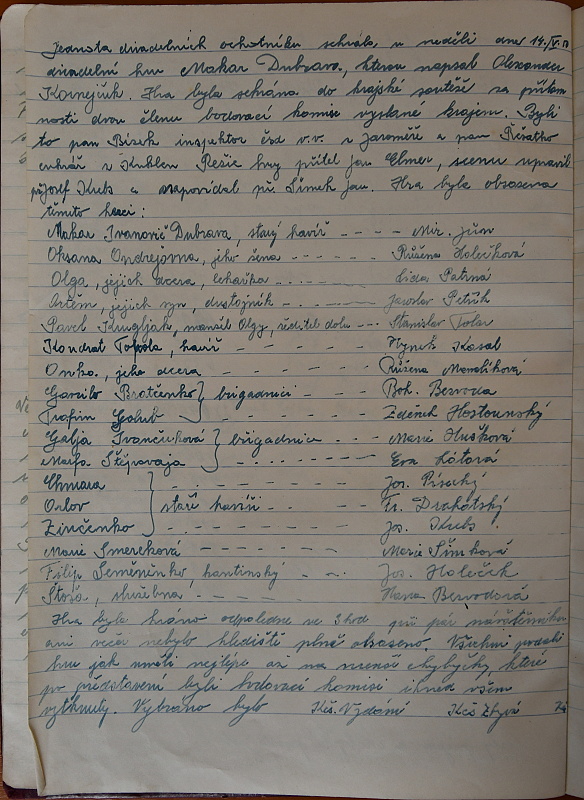 Jednota divadelních ochotníků sehrála v neděli dne 14./V. 
divadelní hru Makar Dubrava, kterou napsal Alexander
Kornejčuk. Hra byla sehrána do krajské soutěže za přítom
nosti dvou členů bodovací komise vyslané krajem. Byli
to pan Bísek inspektor čsd v.v. z Jaroměře a pan Řísatko
cukrář z Kuklen Režie hry přítel Jan Elmer, scenu upravil
př. Josef Kubs a napovídal př. Šimek Jan. Hra byla obsazena
těmito herci:
Makar Ivanovič Dubrava, starý havíř - - - - Mir. Jün
Oksana Ondrejovna, jeho žena - - - - - - Růžena Holečková
Olga, jejich dcera, lékařka - - - - - Lída Patrná
Artěm, jejich syn, důstojník - - - - - Jaroslav Petřík
Pavel Krugljak, manžel Olgy, ředitel dolu - - - Stanislav Tolar
Kondrat Topola, havíř - - - - - Hynek Kasal
Onka, jeho dcera - - - - - - Růžena Moravlíková
Gavrilo Bratčenko } brigadníci - - - Boh. Bezvoda
Trofim Golub - - - - - Zdeněk Hostounský
Galja Ivančuková } brigadnice - - - Marie Hušková
Marfa Štěpovaja - - - - - - Eva Kótová
Chmara - - - - - - - Jos. Písecký
Orlov } staří havíři - - - - Fr. Drahotský
Zinčenko - - - - - - Jos. Kubs
Marie Smereková - - - - - - Marie Šimková
Filip Seměněnko, kantinský - - - Jos. Holeček
Stoša, služebna - - - - - - Hana Bezvodová
Hra byla hrána odpoledne ve 3 hod při pár návštěvníků
ani večer nebylo hlediště plně obsazeno. Všichni podali
hru jak uměli nejlépe až na menší chybičky, které
po představení byli bodovací komisí ihned všem
vytknuty. Vybráno bylo Kčs. Vydání Kčs Zbývá Kč